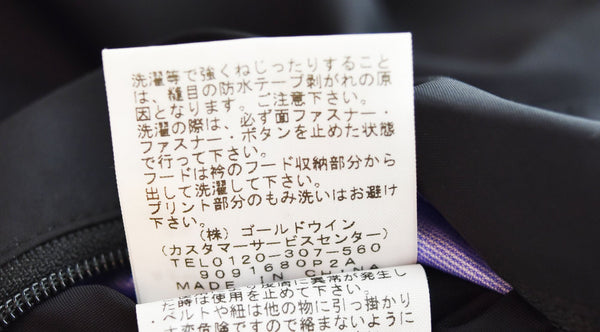 洗濯等で強くねじったりすること
は、縫目の防水テープ剥がれの原
因となります。ご注意下さい。
洗濯の際は、必ず面ファスナー・
ファスナー・ボタンを止めた状態
で行って下さい。
フードは衿のフード収納部分から
出して洗濯して下さい。
プリント部分のもみ洗いはお避け
下さい。
(株) ゴールドウイン
(カスタマーサービスセンター)
TEL0120-307-560
9091680P2A
MADE IN CHINA
異常が発生し
た時は使用を止めて下さい。
ベルトや紐は他の物に引っ掛かり
大変危険ですので絡まないように